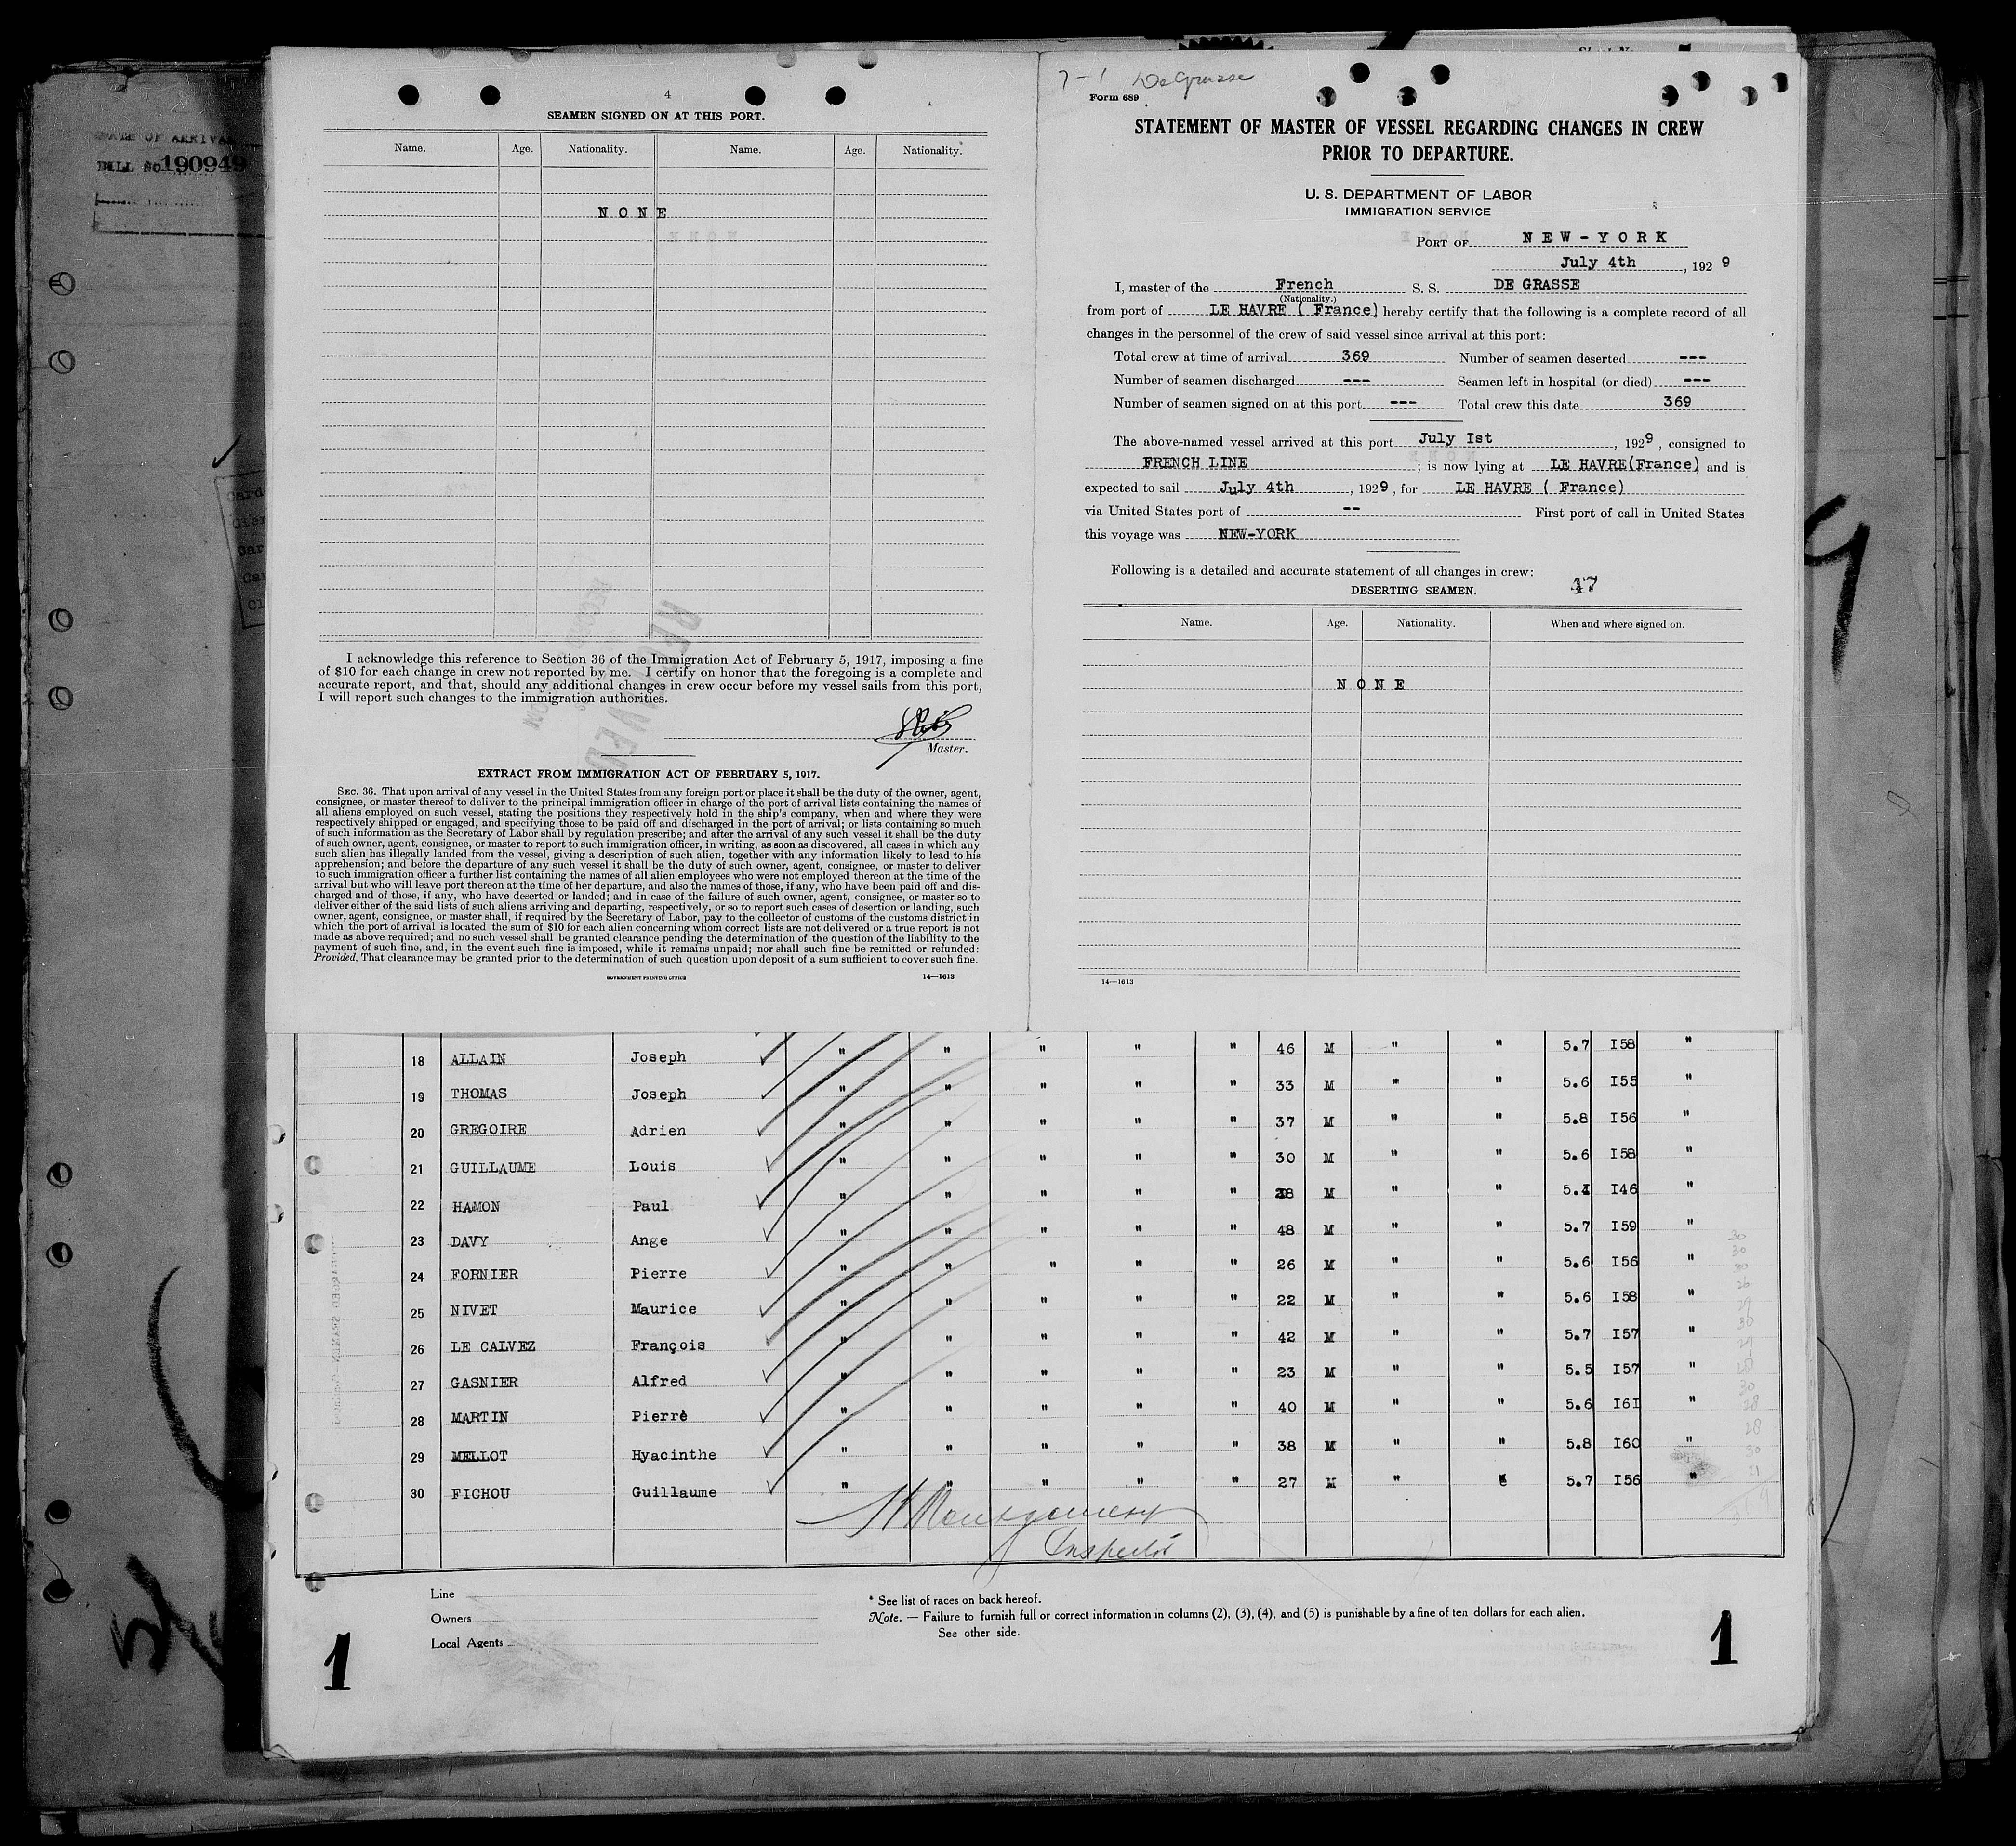 BILL No. 190949
4
SEAMEN SIGNED ON AT THIS PORT.
Name. Age. Nationality. Name. Age. Nationality.
NONE
I acknowledge this reference to Section 36 of the Immigration Act of February 5, 1917, imposing a fine
of $10 for each change in crew not reported by me. I certify on honor that the foregoing is a complete and
accurate report, and that, should any additional changes in crew occur before my vessel sails from this port,
I will report such changes to the immigration authorities.
Master.
EXTRACT FROM IMMIGRATION ACT OF FEBRUARY 5, 1917.
SEC. 36. That upon arrival of any vessel in the United States from any foreign port or place it shall be the duty of the owner, agent,
consignee, or master thereof to deliver to the principal immigration officer in charge of the port of arrival lists containing the names of
all aliens employed on such vessel, stating the positions they respectively hold in the ship's company, when and where they were
respectively shipped or engaged, and specifying those to be paid off and discharged in the port of arrival; or lists containing so much
of such information as the Secretary of Labor shall by regulation prescribe; and after the arrival of any such vessel it shall be the duty
of such owner, agent, consignee, or master to report to such immigration officer, in writing, as soon as discovered, all cases in which any
such alien has illegally landed from the vessel, giving a description of such alien, together with any information likely to lead to his
apprehension; and before the departure of any such vessel it shall be the duty of such owner, agent, consignee, or master to deliver
to such immigration officer a further list containing the names of all alien employees who were not employed thereon at the time of the
arrival but who will leave port thereon at the time of her departure, and also the names of those, if any, who have been paid off and dis-
charged and of those, if any, who have deserted or landed; and in case of the failure of such owner, agent, consignee, or master so to
deliver either of the said lists of such aliens arriving and departing, respectively, or so to report such cases of desertion or landing, such
owner, agent, consignee, or master shall, if required by the Secretary of Labor, pay to the collector of customs of the customs district in
which the port of arrival is located the sum of $10 for each alien concerning whom correct lists are not delivered or a true report is not
made as above required; and no such vessel shall be granted clearance pending the determination of the question of the liability to the
payment of such fine, and, in the event such fine is imposed, while it remains unpaid; nor shall such fine be remitted or refunded:
Provided, That clearance may be granted prior to the determination of such question upon deposit of a sum sufficient to cover such fine.
GOVERNMENT PRINTING OFFICE 14—1613
7-1 De Grasse
Form 689
STATEMENT OF MASTER OF VESSEL REGARDING CHANGES IN CREW
PRIOR TO DEPARTURE.
U. S. DEPARTMENT OF LABOR
IMMIGRATION SERVICE
PORT OF NEW-YORK
July 4th, 1929
I, master of the French S. S. DE GRASSE
(Nationality.)
from port of LE HAVRE ( France) hereby certify that the following is a complete record of all
changes in the personnel of the crew of said vessel since arrival at this port:
Total crew at time of arrival 369 Number of seamen deserted ---
Number of seamen discharged --- Seamen left in hospital (or died) ---
Number of seamen signed on at this port --- Total crew this date 369
The above-named vessel arrived at this port July Ist, 1929, consigned to
FRENCH LINE; is now lying at LE HAVRE(France) and is
expected to sail July 4th, 1929, for LE HAVRE ( France)
via United States port of -- First port of call in United States
this voyage was NEW-YORK
Following is a detailed and accurate statement of all changes in crew:
DESERTING SEAMEN. 47
Name. Age. Nationality. When and where signed on.
NONE
14—1613
18 ALLAIN Joseph " " " " " 46 M " " 5.7 I58 "
19 THOMAS Joseph " " " " " 33 M " " 5.6 I55 "
20 GREGOIRE Adrien " " " " " 37 M " " 5.8 I56 "
21 GUILLAUME Louis " " " " " 30 M " " 5.6 I58 "
22 HAMON Paul " " " " " M " " I46 "
23 DAVY Ange " " " " " 48 M " " 5.7 I59 "
24 FORNIER Pierre " " " " " 26 M " " 5.6 I56 "
25 NIVET Maurice " " " " " 22 M " " 5.6 I58 "
26 LE CALVEZ François " " " " " 42 M " " 5.7 I57 "
27 GASNIER Alfred " " " " " 23 M " " 5.5 I57 "
28 MARTIN Pierre " " " " " 40 M " " 5.6 I6I "
29 MELLOT Hyacinthe " " " " " 38 M " " 5.8 I60 "
30 FICHOU Guillaume " " " " " 27 M " 5.7 I56 "
Montgomery
Inspector
Line
Owners
Local Agents
* See list of races on back hereof.
Note. — Failure to furnish full or correct information in columns (2), (3), (4), and (5) is punishable by a fine of ten dollars for each alien.
See other side.
1
1